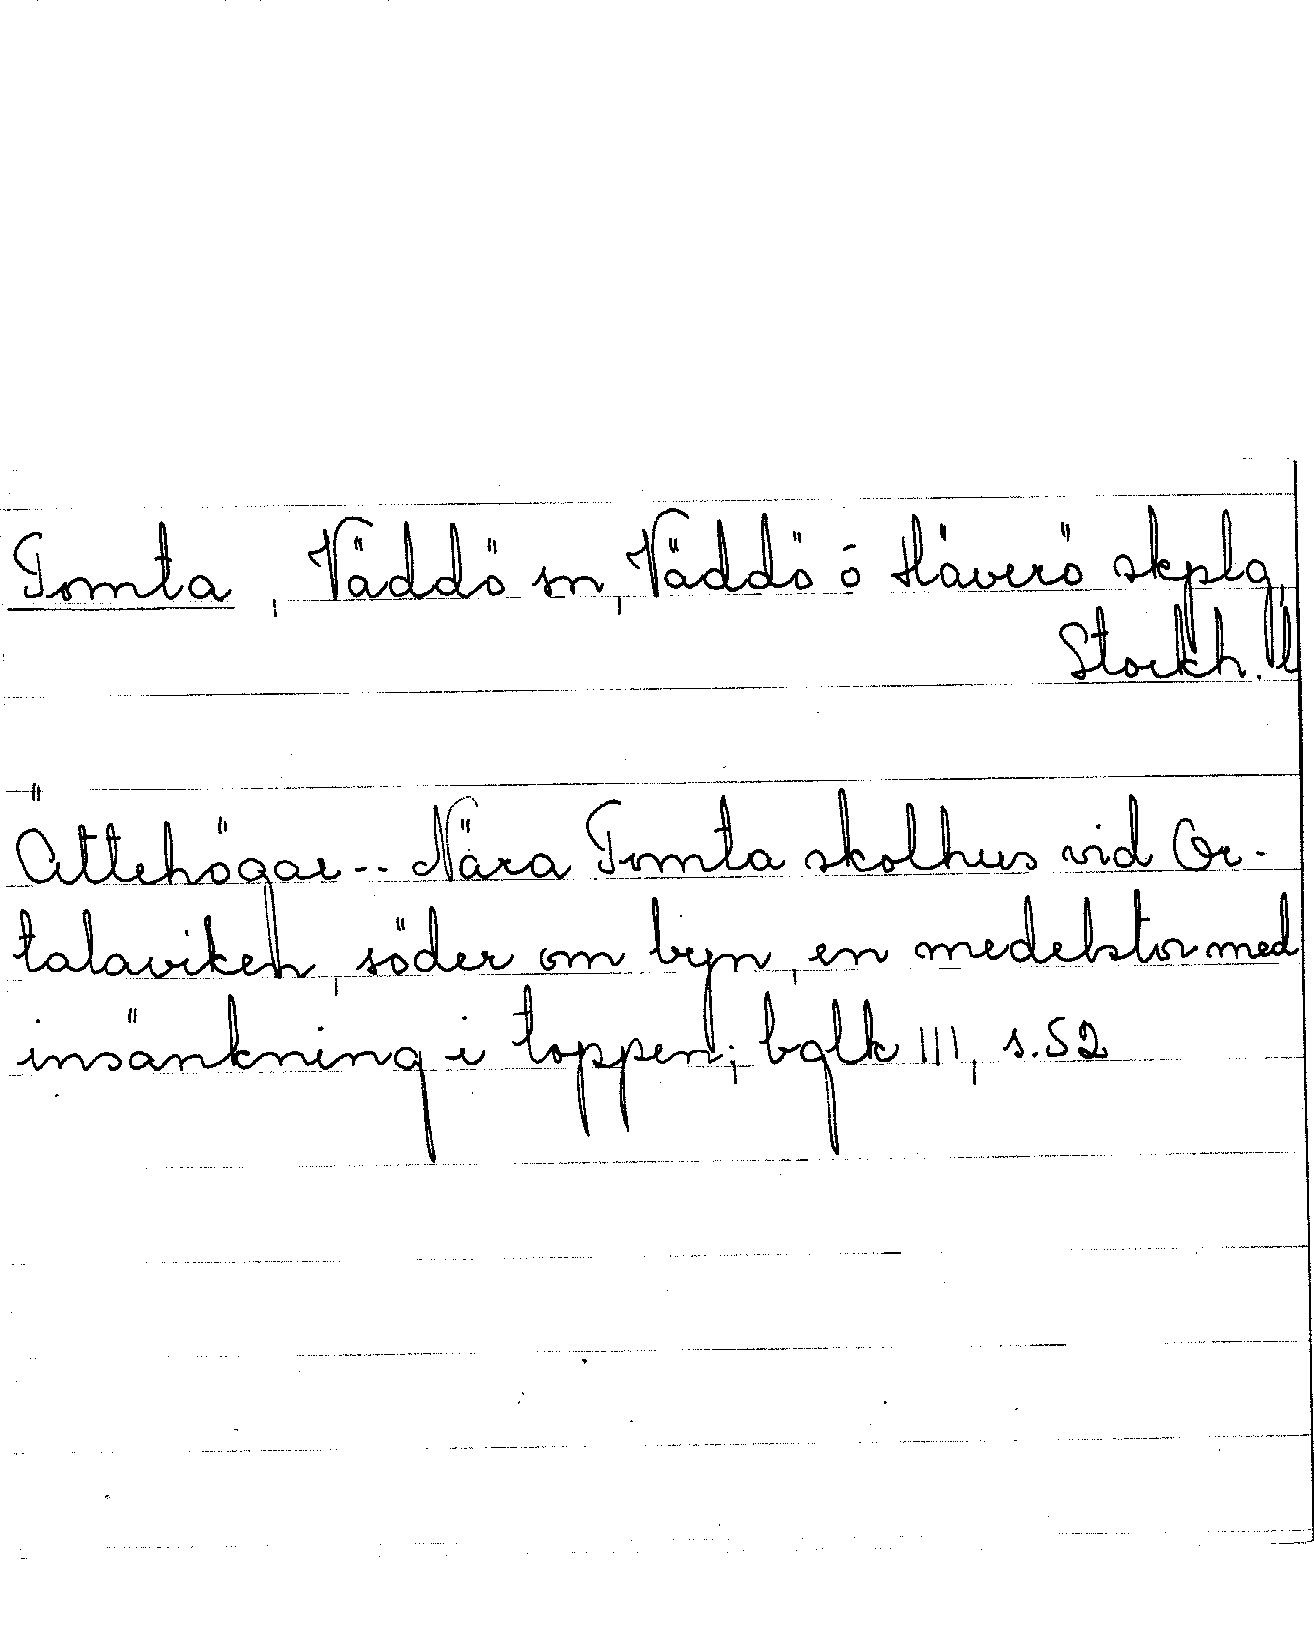 Tomta, Väddö sn, Väddö ö Häverö skplg,
Stockh. l
Ättehögar -- Nära Tomta skolhus vid Or-
talaviken, söder om byn, en medelstor med
insänkning i toppen; bglk III, s. 52